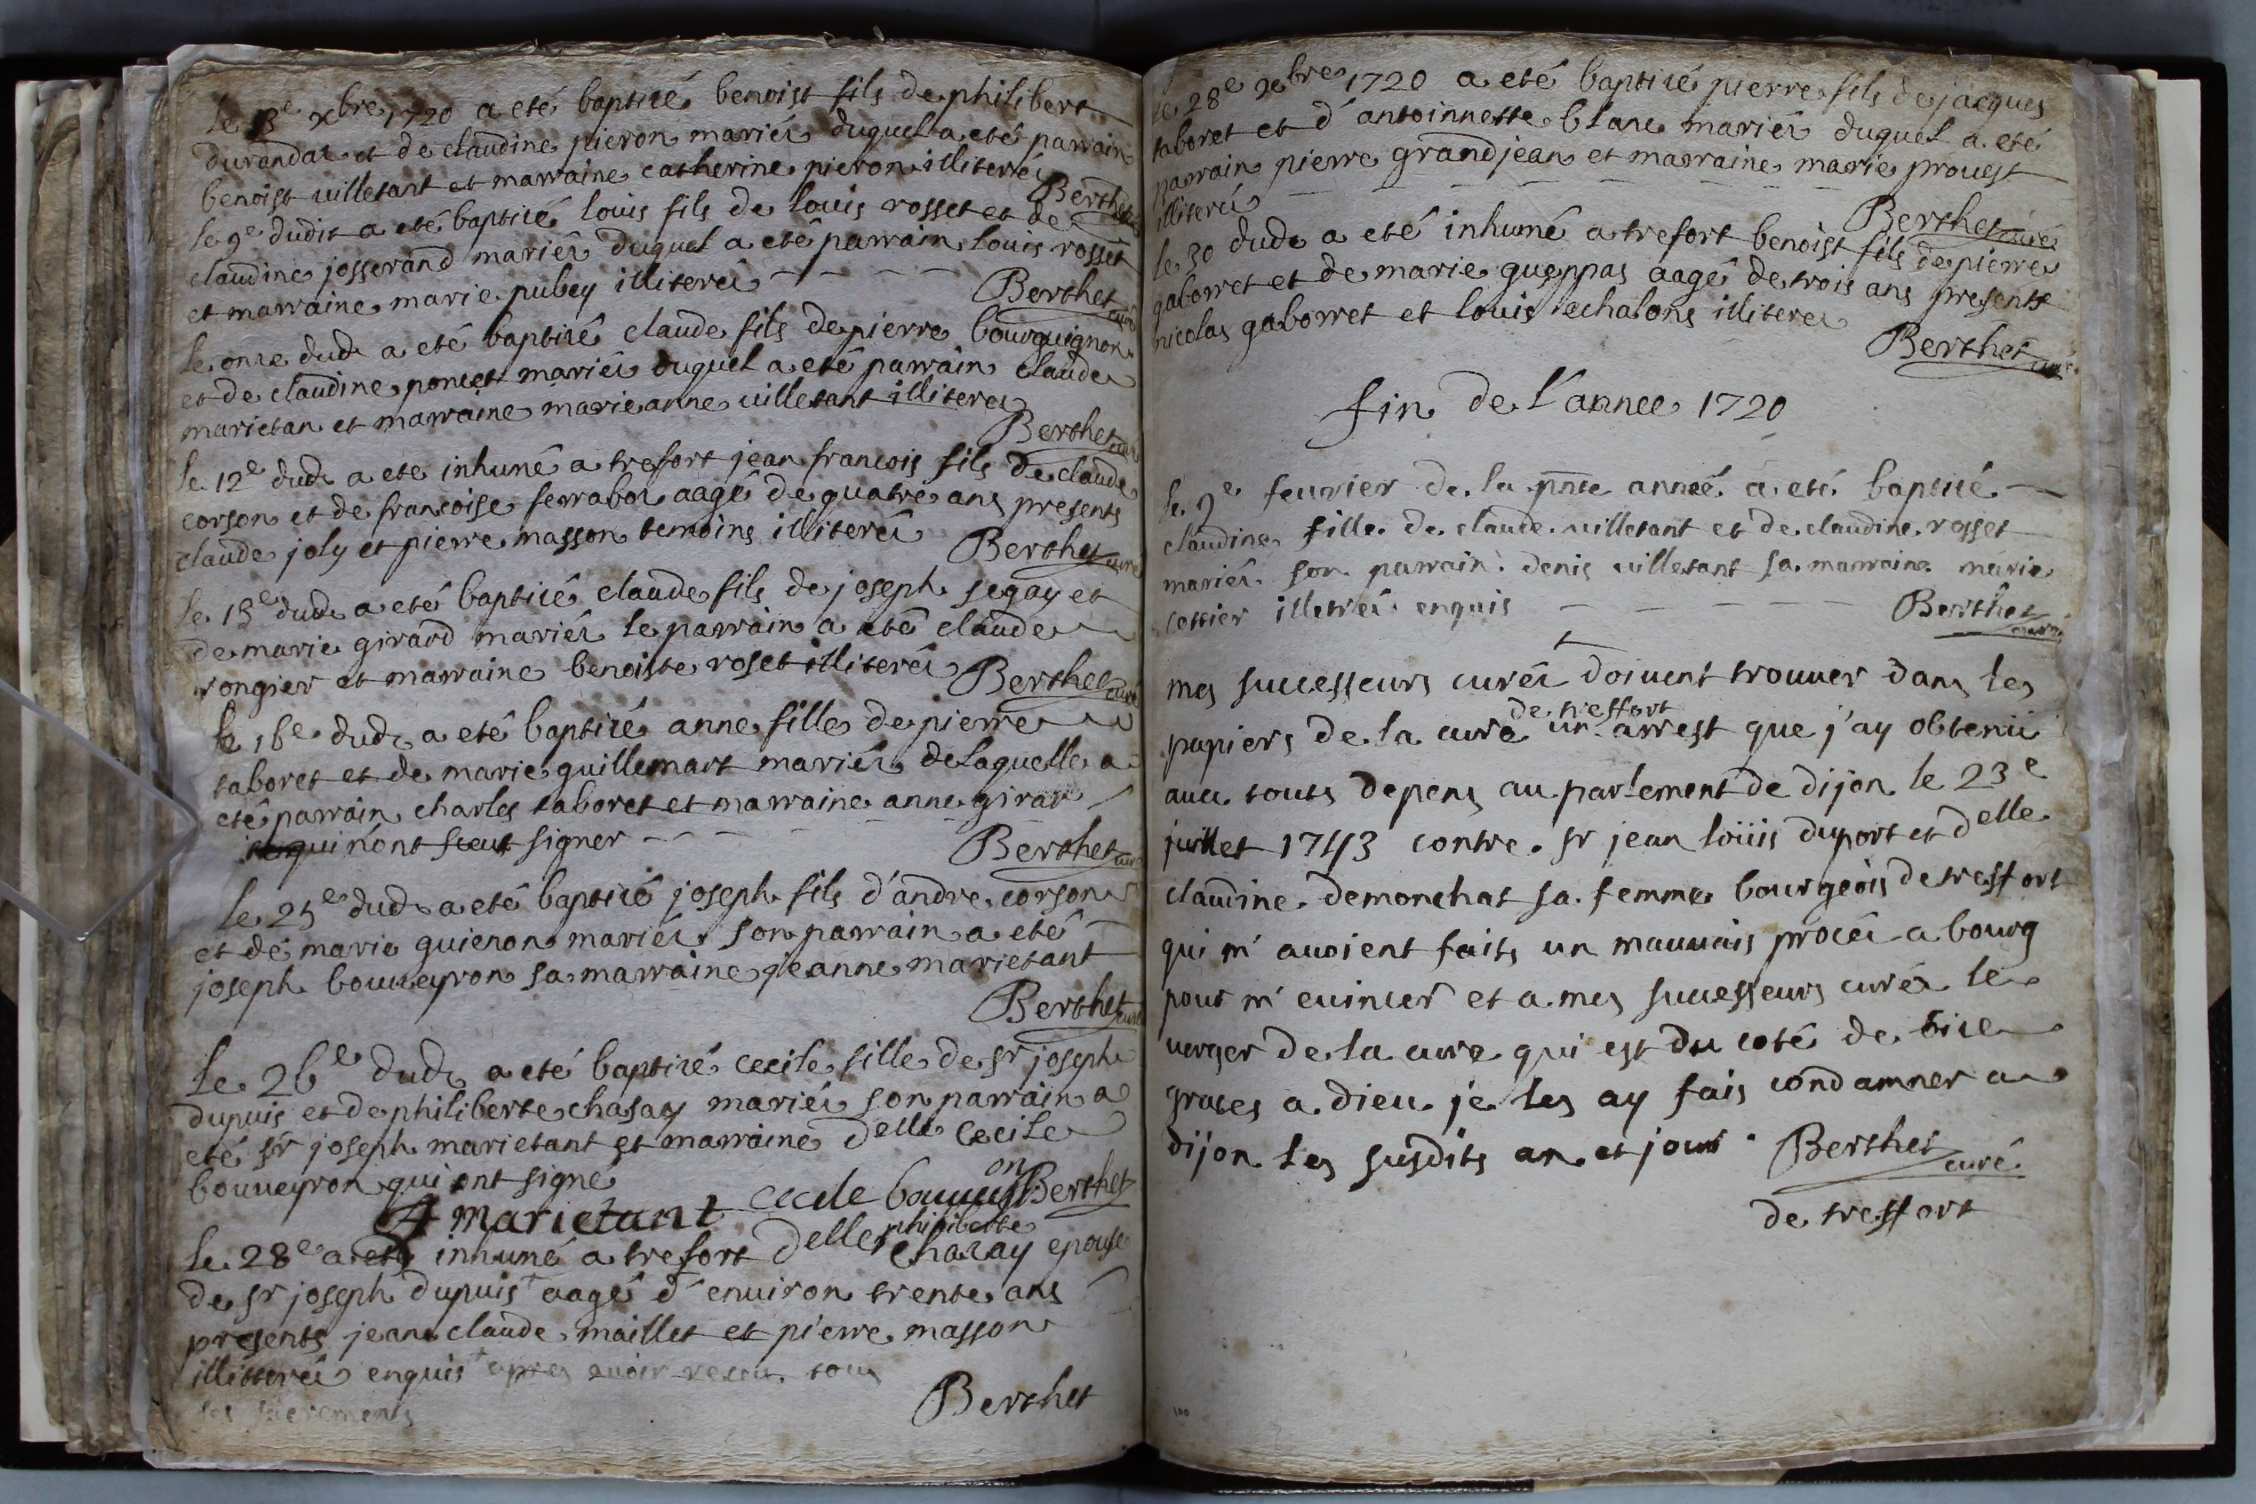 le 3e xbre 1720 a eté baptizé benoist fils de philibert
durandat et de claudine pieron mariéz duquel a eté parrain
benoist villetant et marraine catherine pieron illiteréz
Berthet
le 9e dudit a eté baptizé louis fils de louis rosset et de
claudine josserand mariéz duquel a eté parrain louis rosset
et marraine marie pubey illiteréz
Berthet curé
le onze dud. a eté baptizé claude fils de pierre bourguignon
et de claudine poncet mariéz duquel a eté parrain claude
marietan et marraine marieanne villetant illiterez
Berthet curé
le 12e dud. a ete inhumé a trefort jean francois fils de claude
corson et de francoise ferraboz aagé de quatre ans presents
claude joly et pierre masson temoins illiteréz
Berthet curé
le 15e dud. a eté baptizé claude fils de joseph segay et
de marie girard mariéz le parrain a eté claude
rongier et marraine benoiste roset illiteréz
Berthet curé
le 16e dud. a eté baptizé anne fille de pierre
taboret et de marie guillemart mariéz de laquelle a
eté parrain charles taboret et marraine anne girar
qui n'ont sceut signer
Berthet curé
le 25e dud. a eté baptizé joseph fils d'andre corson
et de marie guieron mariéz son parrain a eté
joseph bouveyron sa marraine jeanne marietant
Berthet curé
le 26e dud. a eté baptizé cecile fille de sr joseph
dupuis et de philiberte chasay mariéz son parrain a
eté sr joseph marietant et marraine delle cecile
bouveyron qui ont signé
marietant cecile bouveyron Berthet
philiberte
le 28e a eté inhumé a trefort delle chazay epouse
de sr joseph dupuis + aagé d'environ trente ans
presents jean claude maillet et pierre masson
illitteréz enquis + apres avoir receu tous
les sacrements
Berthet
le 28e xbre 1720 a eté baptizé pierre fils de jacques
taboret et d'antoinnette blanc mariéz duquel a eté
parrain pierre grandjean et marraine marie provest
illiteréz
Berthet curé
le 30 dud. a eté inhumé a trefort benoist fils de pierre
gaborret et de marie gueppas aagé de trois ans presents
nicolas gaborret et louis echalons illiterez
Berthet curé
fin de l'année 1720
le 9e fevrier de la pnte année a eté baptizé
claudine fille de claude villetant et de claudine rosset
mariéz son parrain denis villetant sa marraine marie
cottier illetréz enquis
Berthet curé
+
mes successeurs curéz doivent trouver dans les
de treffort
papiers de la cure un arrest que j'ay obtenü
avec touts depens au parlement de dijon le 23e
juillet 1743 contre sr jean loüis duport et delle
claudine demonchat sa femme bourgeois de treffort
qui m'avoient faits un mauvais procéz a bourg
pour m'evincer et a mes successeurs curéz le
verger de la cure qui est du coté de bize
graces a dieu je les ay fais condamner a
dijon les susdits an et jour
Berthet curé
de treffort
100